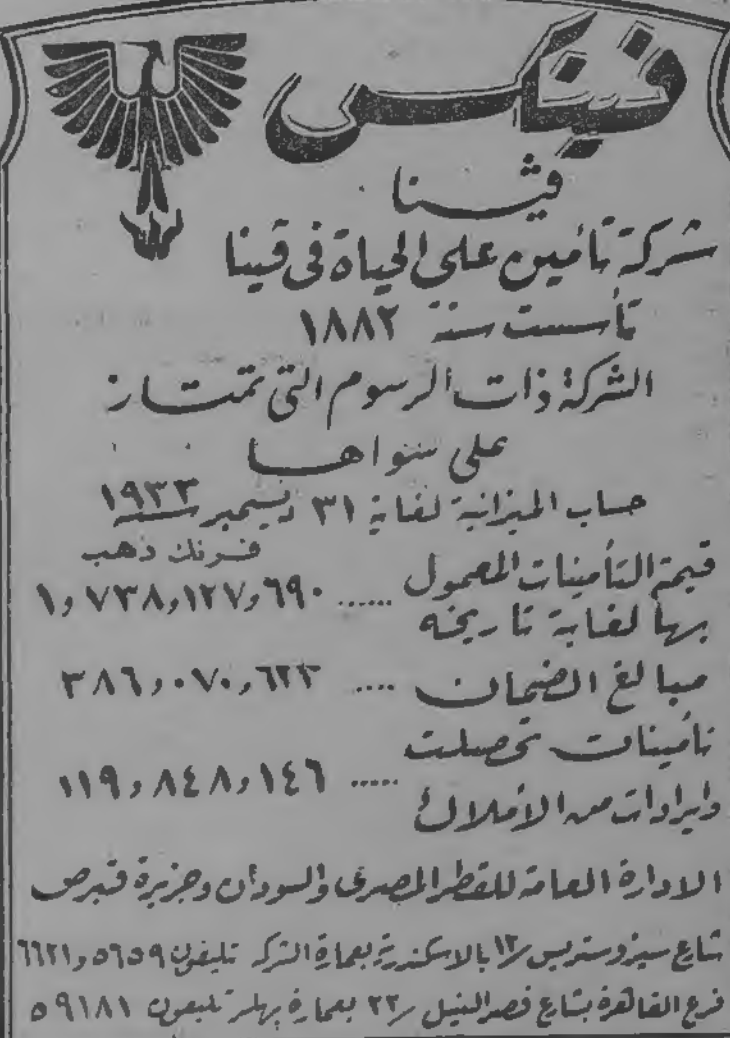 فينكس
ڤينا
شركة تأمين على الحياة فى ڤينا
تأسست سنة ١٨٨٢
الشركة ذات الرسوم التى تمتاز
على سواها
حساب الميزانية لغاية ٣١ ديسمبر سنة ١٩٣٣
فرنك ذهب
قيمة التأمينات المعمول
١,٧٣٨,١٢٧,٦٩٠ ......
بها لغاية تاريخه
مبالغ الضمان .... ٣٨٦,٠٧٠,٦٢٣
تأمينات تحصلت
١١٩,٨٤٨,١٤٦ .....
وايرادات من الأملاك
الادارة العامة للقطر المصرى والسودان وجزيرة قبرص
شارع سيزوستريس ١٢ بالاسكندرية بعمارة الشركة تليفون ٥٦٥٩ و ٦٦٢١
فرع القاهرة بشارع قصر النيل ٢٢ بعمارة بهلر تليفون ٥٩١٨١